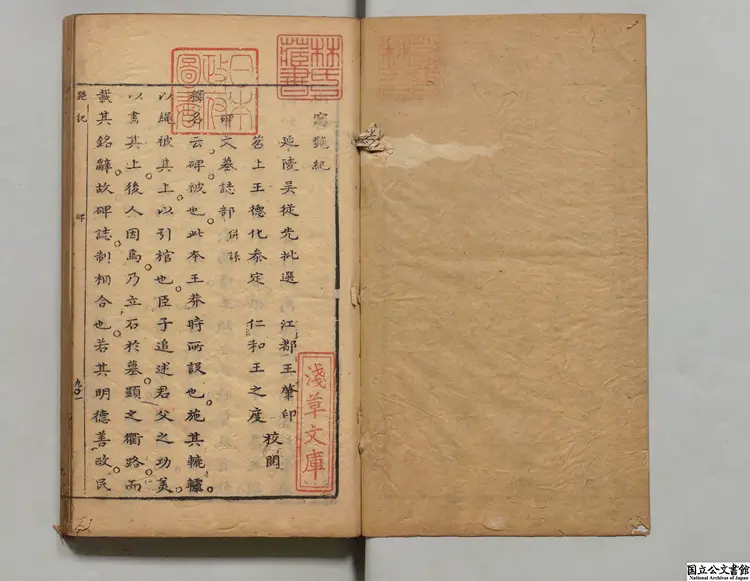 林氏
藏書
日本
政府
圖書
窓艷紀
延陵吳從先批選 江都王肇印
苕上王德化參定 仁和王之度
校閱
碑文墓誌部
釋名云碑被也此本王莽時所設也施其轆轤
以繩被其上以引棺也臣子追述君父之功美
以書其上後人因焉乃立石於墓顯之衢路而
載其銘辭故碑誌制相合也若其明德善政民
艷紀 碑
淺草文庫
国立公文書館
National Archives of Japan